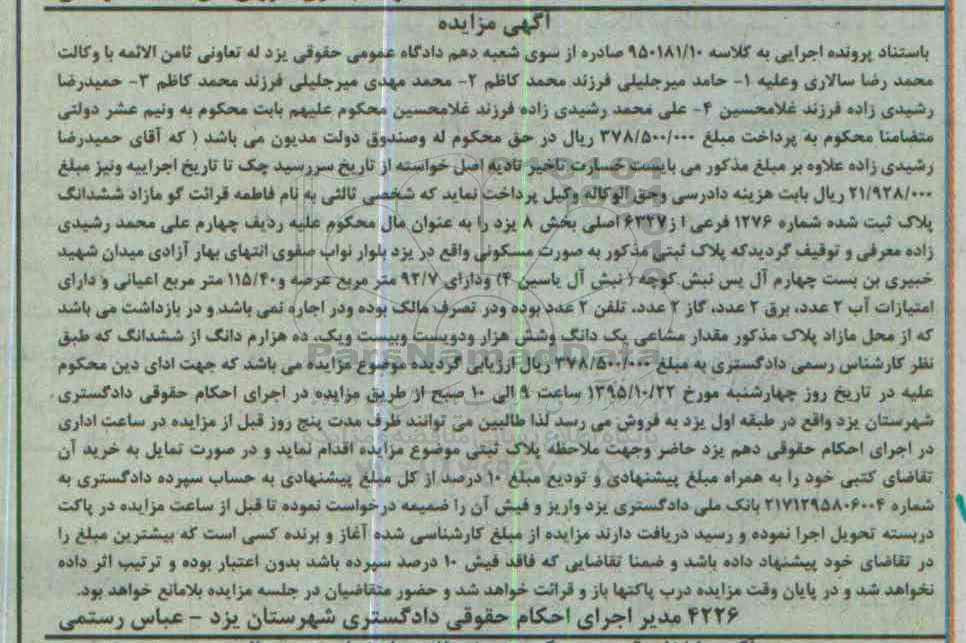 آگهی مزایده
باستناد پرونده اجرایی به کلاسه ۹۵۰۱۸۱/۱۰ صادره از سوی شعبه دهم دادگاه عمومی حقوقی یزد له تعاونی ثامن الائمه با وکالت
محمد رضا سالاری وعلیه ۱- حامد میرجلیلی فرزند محمد کاظم ۲- محمد مهدی میرجلیلی فرزند محمد کاظم ۳- حمیدرضا
رشیدی زاده فرزند غلامحسین ۴- علی محمد رشیدی زاده فرزند غلامحسین محکوم علیهم بابت محکوم به ونیم عشر دولتی
متضامنا محکوم به پرداخت مبلغ ۳۷۸/۵۰۰/۰۰۰ ریال در حق محکوم له وصندوق دولت مدیون می باشد ( که آقای حمیدرضا
رشیدی زاده علاوه بر مبلغ مذکور می بایست خسارت تاخیر تادیه اصل خواسته از تاریخ سررسید چک تا تاریخ اجراییه ونیز مبلغ
۲۱/۹۲۸/۰۰۰ ریال بابت هزینه دادرسی وحق الوکاله وکیل پرداخت نماید که شخصی ثالثی به نام فاطمه قرائت گو مازاد ششدانگ
پلاک ثبت شده شماره ۱۲۷۶ فرعی ا ز ۶۳۴۷ اصلی بخش ۸ یزد را به عنوان مال محکوم علیه ردیف چهارم علی محمد رشیدی
زاده معرفی و توقیف گردیدکه پلاک ثبتی مذکور به صورت مسکونی واقع در یزد بلوار نواب صفوی انتهای بهار آزادی میدان شهید
خبیری بن بست چهارم آل یس نبش کوچه ( نبش آل یاسین ۴) ودارای ۹۲/۷ متر مربع عرصه و۱۱۵/۴۰ متر مربع اعیانی و دارای
امتیازات آب ۲ عدد، برق ۲ عدد، گاز ۲ عدد، تلفن ۲ عدد بوده ودر تصرف مالک بوده ودر اجاره نمی باشد و در بازداشت می باشد
که از محل مازاد پلاک مذکور مقدار مشاعی یک دانگ وشش هزار ودویست وبیست ویک، ده هزارم دانگ از ششدانگ که طبق
نظر کارشناس رسمی دادگستری به مبلغ ۳۷۸/۵۰۰/۰۰۰ ریال ارزیابی گردیده موضوع مزایده می باشد که جهت ادای دین محکوم
علیه در تاریخ روز چهارشنبه مورخ ۱۳۹۵/۱۰/۲۲ ساعت ۹ الی ۱۰ صبح از طریق مزایده در اجرای احکام حقوقی دادگستری
شهرستان یزد واقع در طبقه اول یزد به فروش می رسد لذا طالبین می توانند ظرف مدت پنج روز قبل از مزایده در ساعت اداری
در اجرای احکام حقوقی دهم یزد حاضر وجهت ملاحظه پلاک ثبتی موضوع مزایده اقدام نماید و در صورت تمایل به خرید آن
تقاضای کتبی خود را به همراه مبلغ پیشنهادی و تودیع مبلغ ۱۰ درصد از کل مبلغ پیشنهادی به حساب سپرده دادگستری به
شماره ۲۱۷۱۲۹۵۸۰۶۰۰۴ بانک ملی دادگستری یزد واریز و فیش آن را ضمیمه درخواست نموده تا قبل از ساعت مزایده در پاکت
دربسته تحویل اجرا نموده و رسید دریافت دارند مزایده از مبلغ کارشناسی شده آغاز و برنده کسی است که بیشترین مبلغ را
در تقاضای خود پیشنهاد داده باشد و ضمنا تقاضایی که فاقد فیش ۱۰ درصد سپرده باشد بدون اعتبار بوده و ترتیب اثر داده
نخواهد شد و در پایان وقت مزایده درب پاکتها باز و قرائت خواهد شد و حضور متقاضیان در جلسه مزایده بلامانع خواهد بود.
۴۲۲۶ مدیر اجرای احکام حقوقی دادگستری شهرستان یزد - عباس رستمی
ParsNamadData